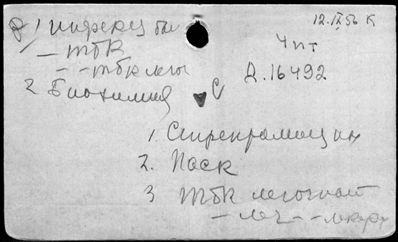 12.IX.56 К
1 инфекц бол
Чит
— тбк
Д.16492
— — тбк легк
2 Биохимия
С
1. Стрептомицин
2. Паск
3 тбк легочной
— леч — лекар